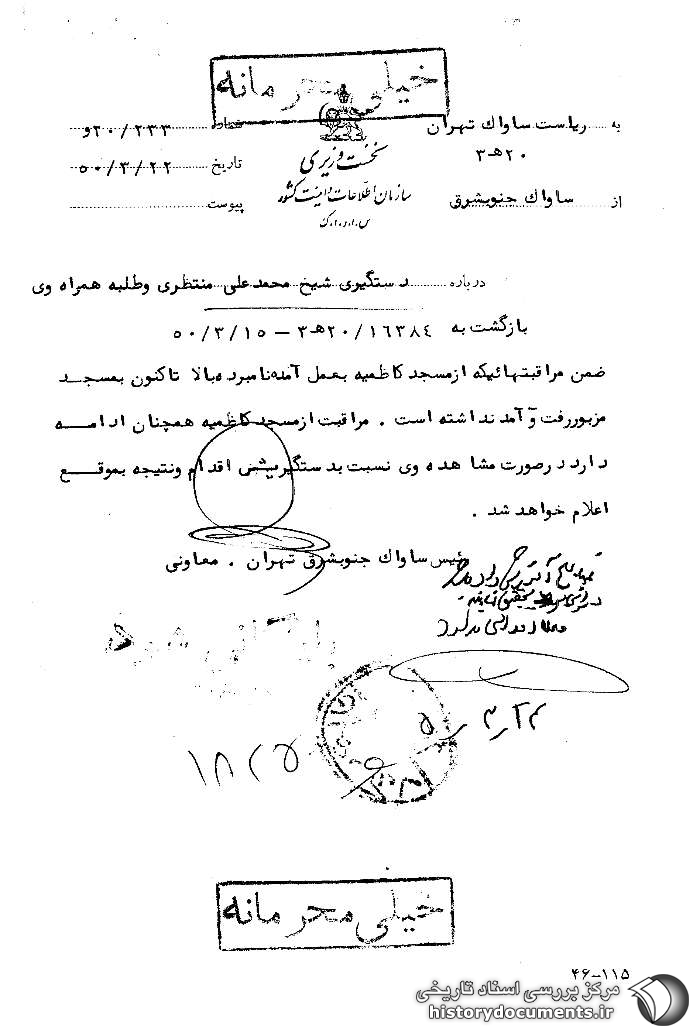 خیلی محرمانه
به ..... ریاست ساواک تهران
۲۰ هـ ۳
نخست وزیری
سازمان اطلاعات و امنیت کشور
س.ا.و.ا.ک
شماره ۲۰/۲۳۳و
تاریخ ۵۰/۳/۲۲
پیوست
از ساواک جنوبشرق
درباره ..... دستگیری شیخ محمدعلی منتظری وطلبه همراه وی
بازگشت به ۲۰/۱۶۳۸۴هـ۳ – ۵۰/۳/۱۵
ضمن مراقبتهائیکه ازمسجد کاظمیه بعمل آمده‌نامبرده‌بالا تاکنون بمسجد
مزبوررفت و آمد نداشته است . مراقبت ازمسجد کاظمیه همچنان ادامه
دارد درصورت مشاهده وی نسبت بدستگیریش اقدام ونتیجه بموقع
اعلام خواهد شد .
رئیس ساواک جنوبشرق تهران . معاونی
بایگانی شود
۵۰/۳/۲۴
۱۸۲۵
خیلی محرمانه
۴۶-۱۱۵
مرکز بررسی اسناد تاریخی
historydocuments.ir